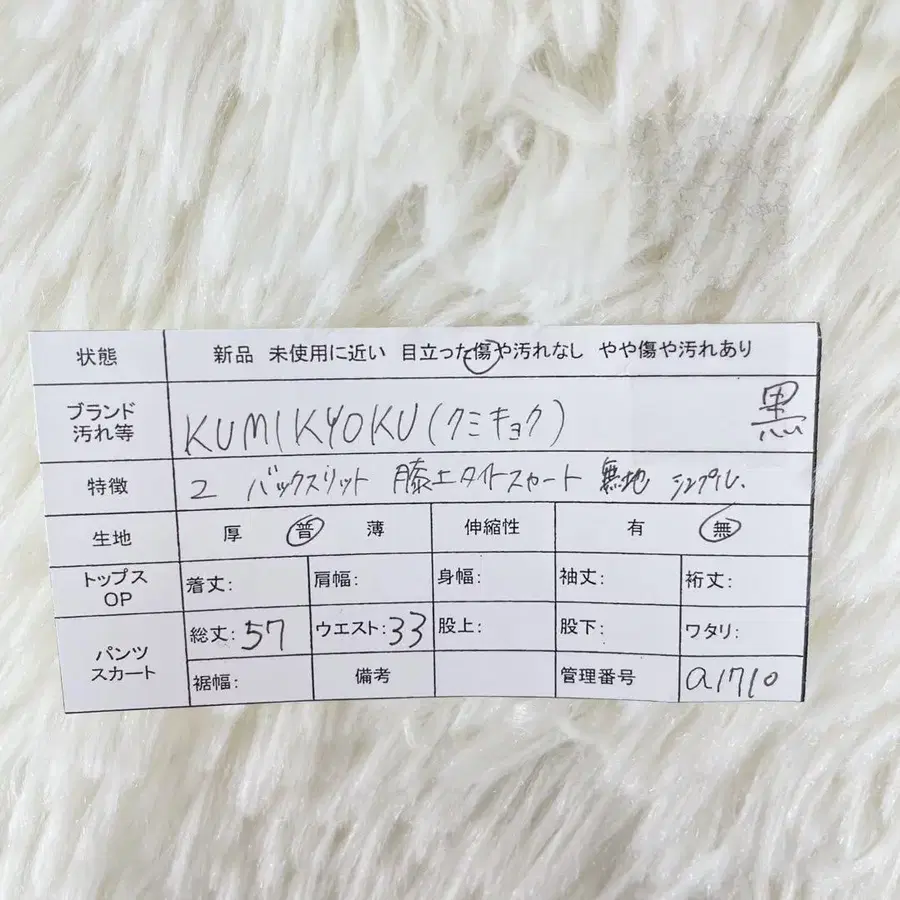 状態 新品 未使用に近い 目立った傷や汚れなし やや傷や汚れあり
ブランド
汚れ等 KUMIKYOKU(クミキョク) 黒
特徴 2 バックスリット 膝上タイトスカート 無地 シンプル、
生地 厚 普 薄 伸縮性 有 無
トップス
OP 着丈: 肩幅: 身幅: 袖丈: 裄丈:
パンツ
スカート 総丈:57 ウエスト:33 股上: 股下: ワタリ:
裾幅: 備考 管理番号 a1710